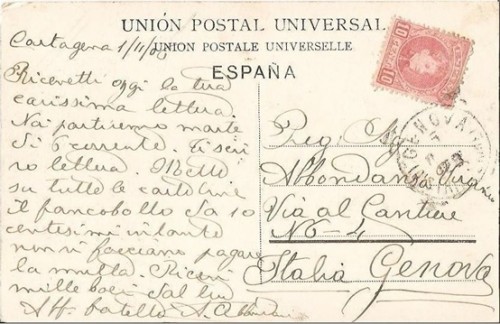 UNIÓN POSTAL UNIVERSAL
UNION POSTALE UNIVERSELLE
ESPAÑA
Cartagena 1/11/
Ricevetti oggi la tua
carissima lettera.
Noi partiremo marte
di 6 corrente. Ti scri
ro lettera. Metti
su tutte le cartoline
il francobollo da 10
centesimi intanto
non vi facciano pagare
la multa. Ricevi
mille baci dal tuo
Aff. fratello A.
10
10
GENOVA
Preg.
Abbondanza
Via al Cantiere
No - 4
Italia Genova